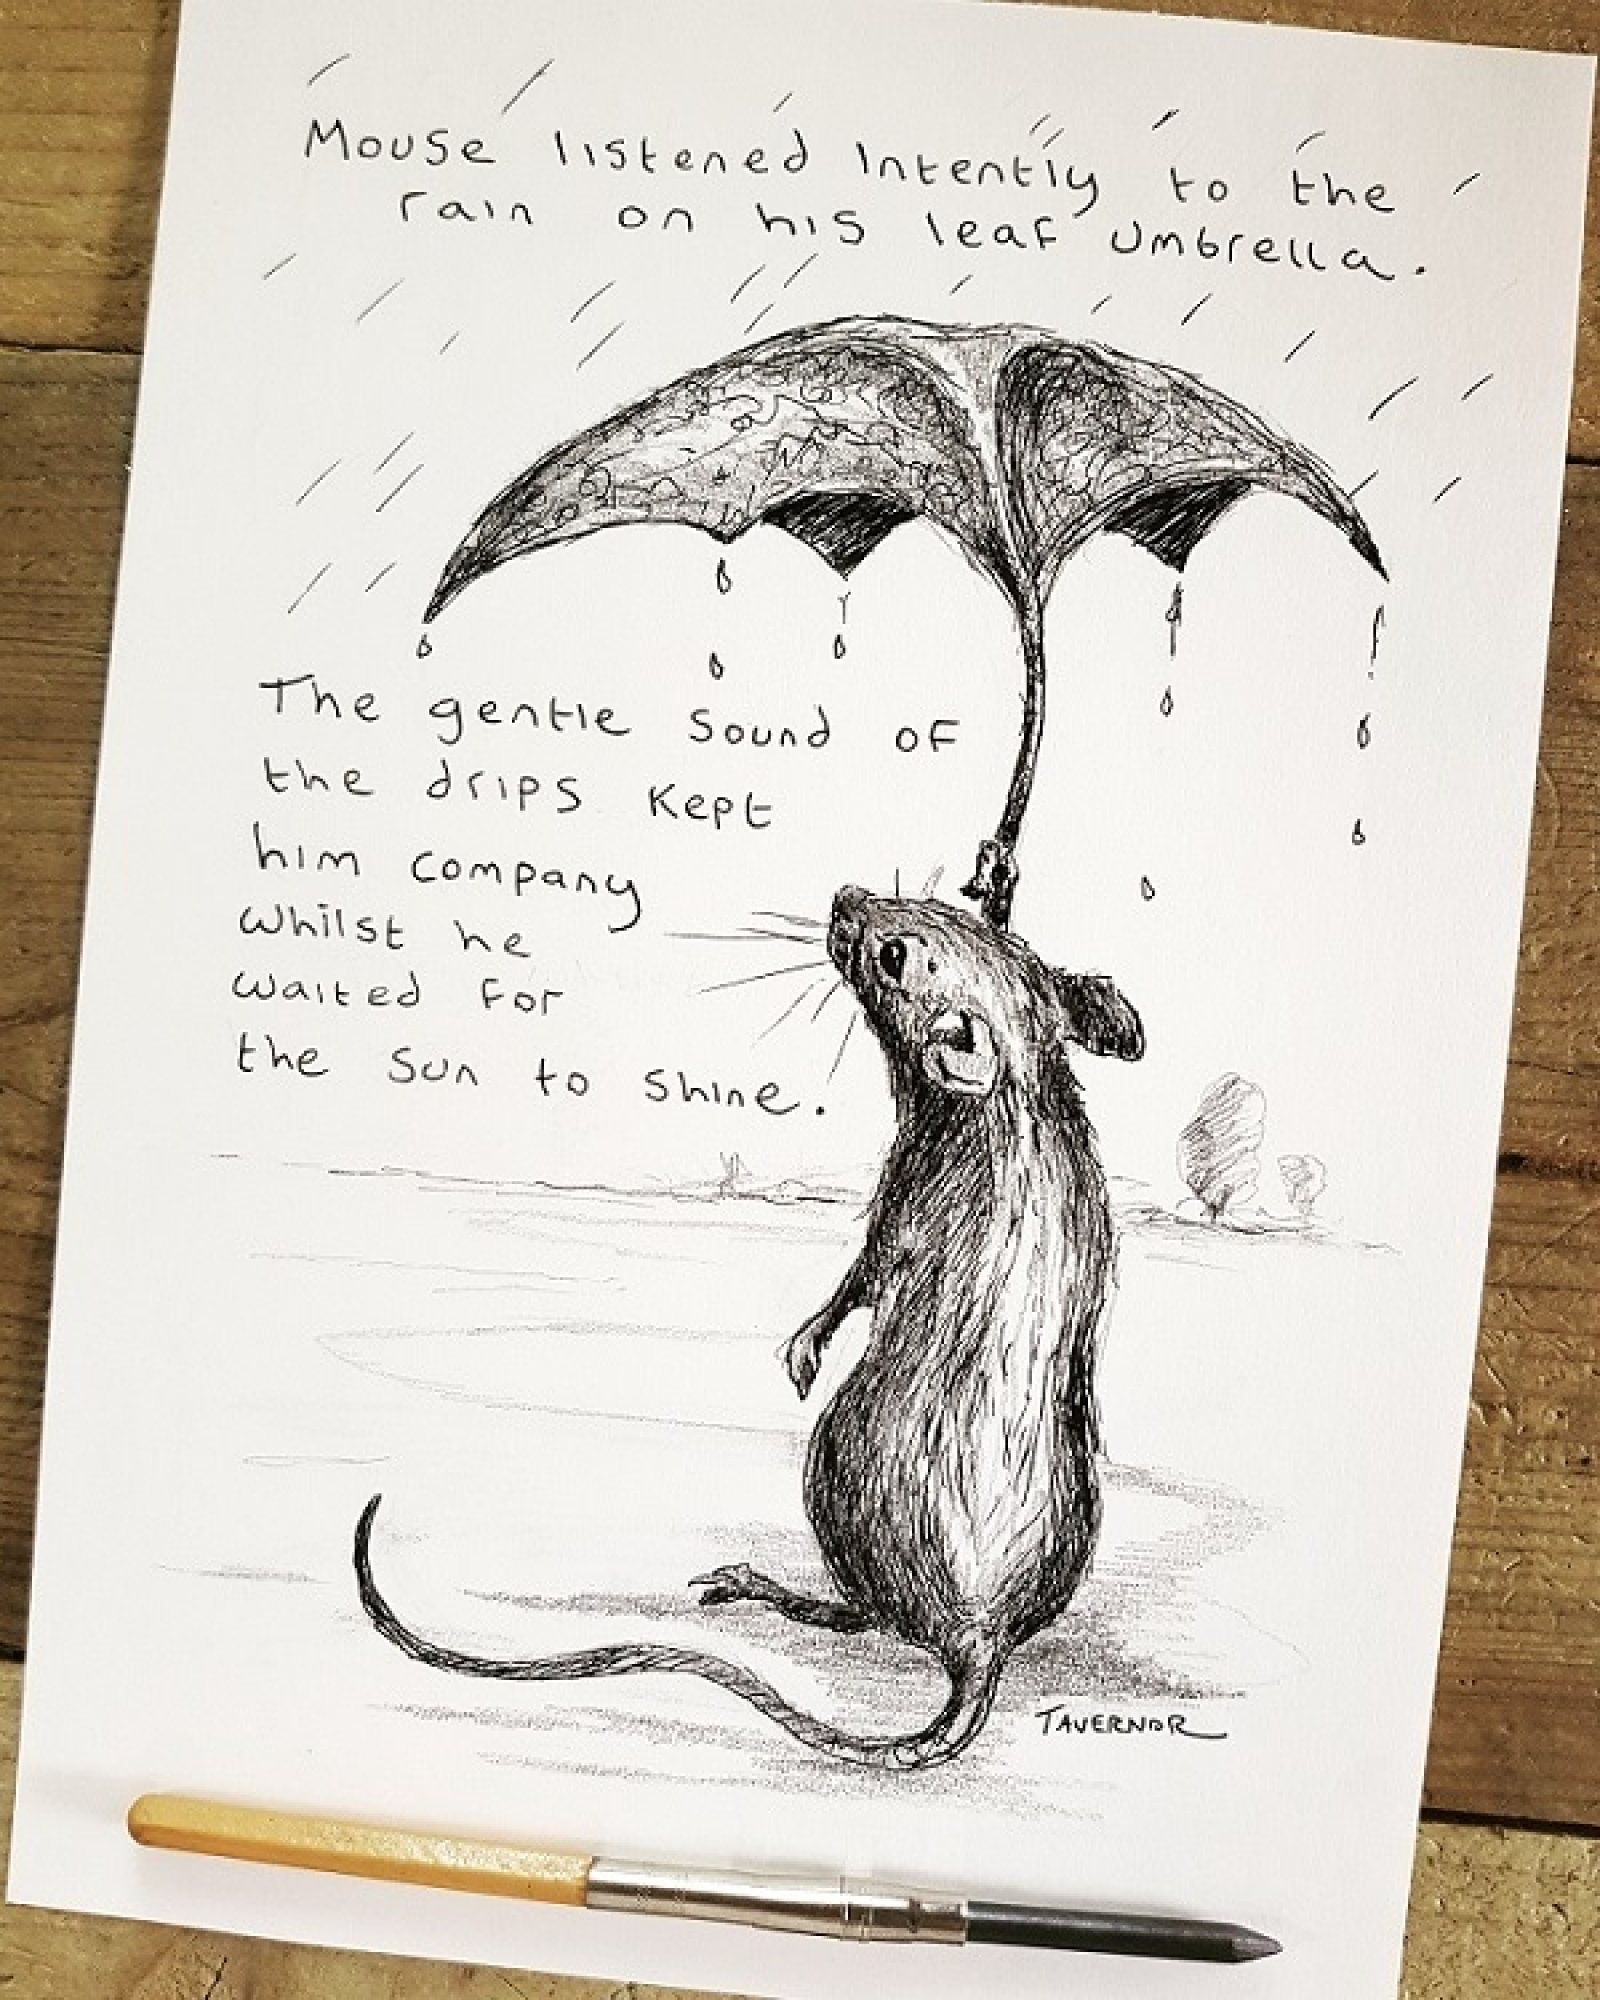 Mouse listened intently to the
rain on his leaf umbrella.
The gentle sound of
the drips kept
him company
whilst he
waited for
the sun to shine.
TAVERNOR